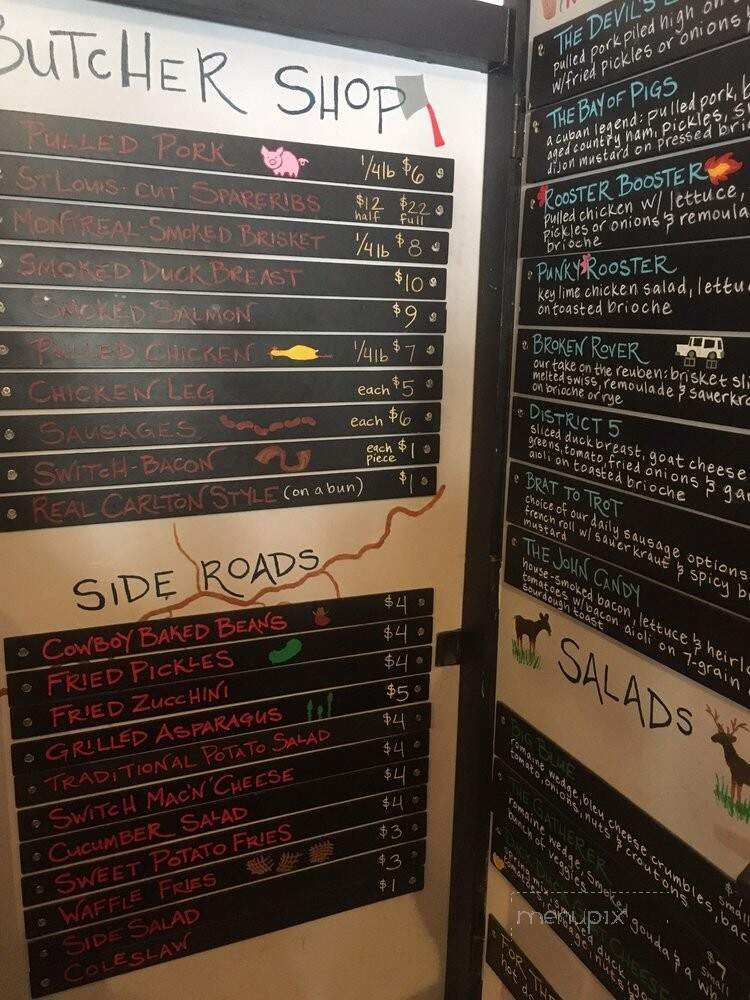 BUTCHER SHOP
PULLED PORK 1/4lb $6
ST LOUIS-CUT SPARERIBS $12 half $22 full
MONTREAL SMOKED BRISKET 1/4lb $8
SMOKED DUCK BREAST $10
SMOKED SALMON $9
PULLED CHICKEN 1/4lb $7
CHICKEN LEG each $5
SAUSAGES each $6
SWITCH-BACON each piece $1
REAL CARLTON STYLE (on a bun) $1
SIDE ROADS
COWBOY BAKED BEANS $4
FRIED PICKLES $4
FRIED ZUCCHINI $4
GRILLED ASPARAGUS $5
TRADITIONAL POTATO SALAD $4
SWITCH MAC'N'CHEESE $4
CUCUMBER SALAD $4
SWEET POTATO FRIES $4
WAFFLE FRIES $3
SIDE SALAD $3
COLESLAW $1
THE DEVIL'S
pulled pork piled high on
w/fried pickles or onions
THE BAY OF PIGS
a cuban legend: pulled pork,
aged country ham, pickles,
dijon mustard on pressed
ROOSTER BOOSTER
pulled chicken w/ lettuce,
pickles or onions & remoula
brioche
PUNKY ROOSTER
key lime chicken salad, lettu
on toasted brioche
BROKEN ROVER
our take on the reuben: brisket sli
melted swiss, remoulade & sauerkra
on brioche or rye
DISTRICT 5
sliced duck breast, goat cheese
greens, tomato, fried onions & ga
aioli on toasted brioche
BRAT TO TROT
choice of our daily sausage options
french roll w/ sauerkraut & spicy b
mustard
THE JOHN CANDY
house-smoked bacon, lettuce & heirl
tomatoes w/bacon aioli on 7-grain
sourdough toast
SALADS
BIG BLUE
romaine wedge, bleu cheese crumbles, bac
tomato, onions, nuts & croutons
small
THE GATHERER
romaine wedge, smoked gouda & a wh
bunch of veggies
$7
small
CHEESE
smoked duck,
FOR THE
menupix